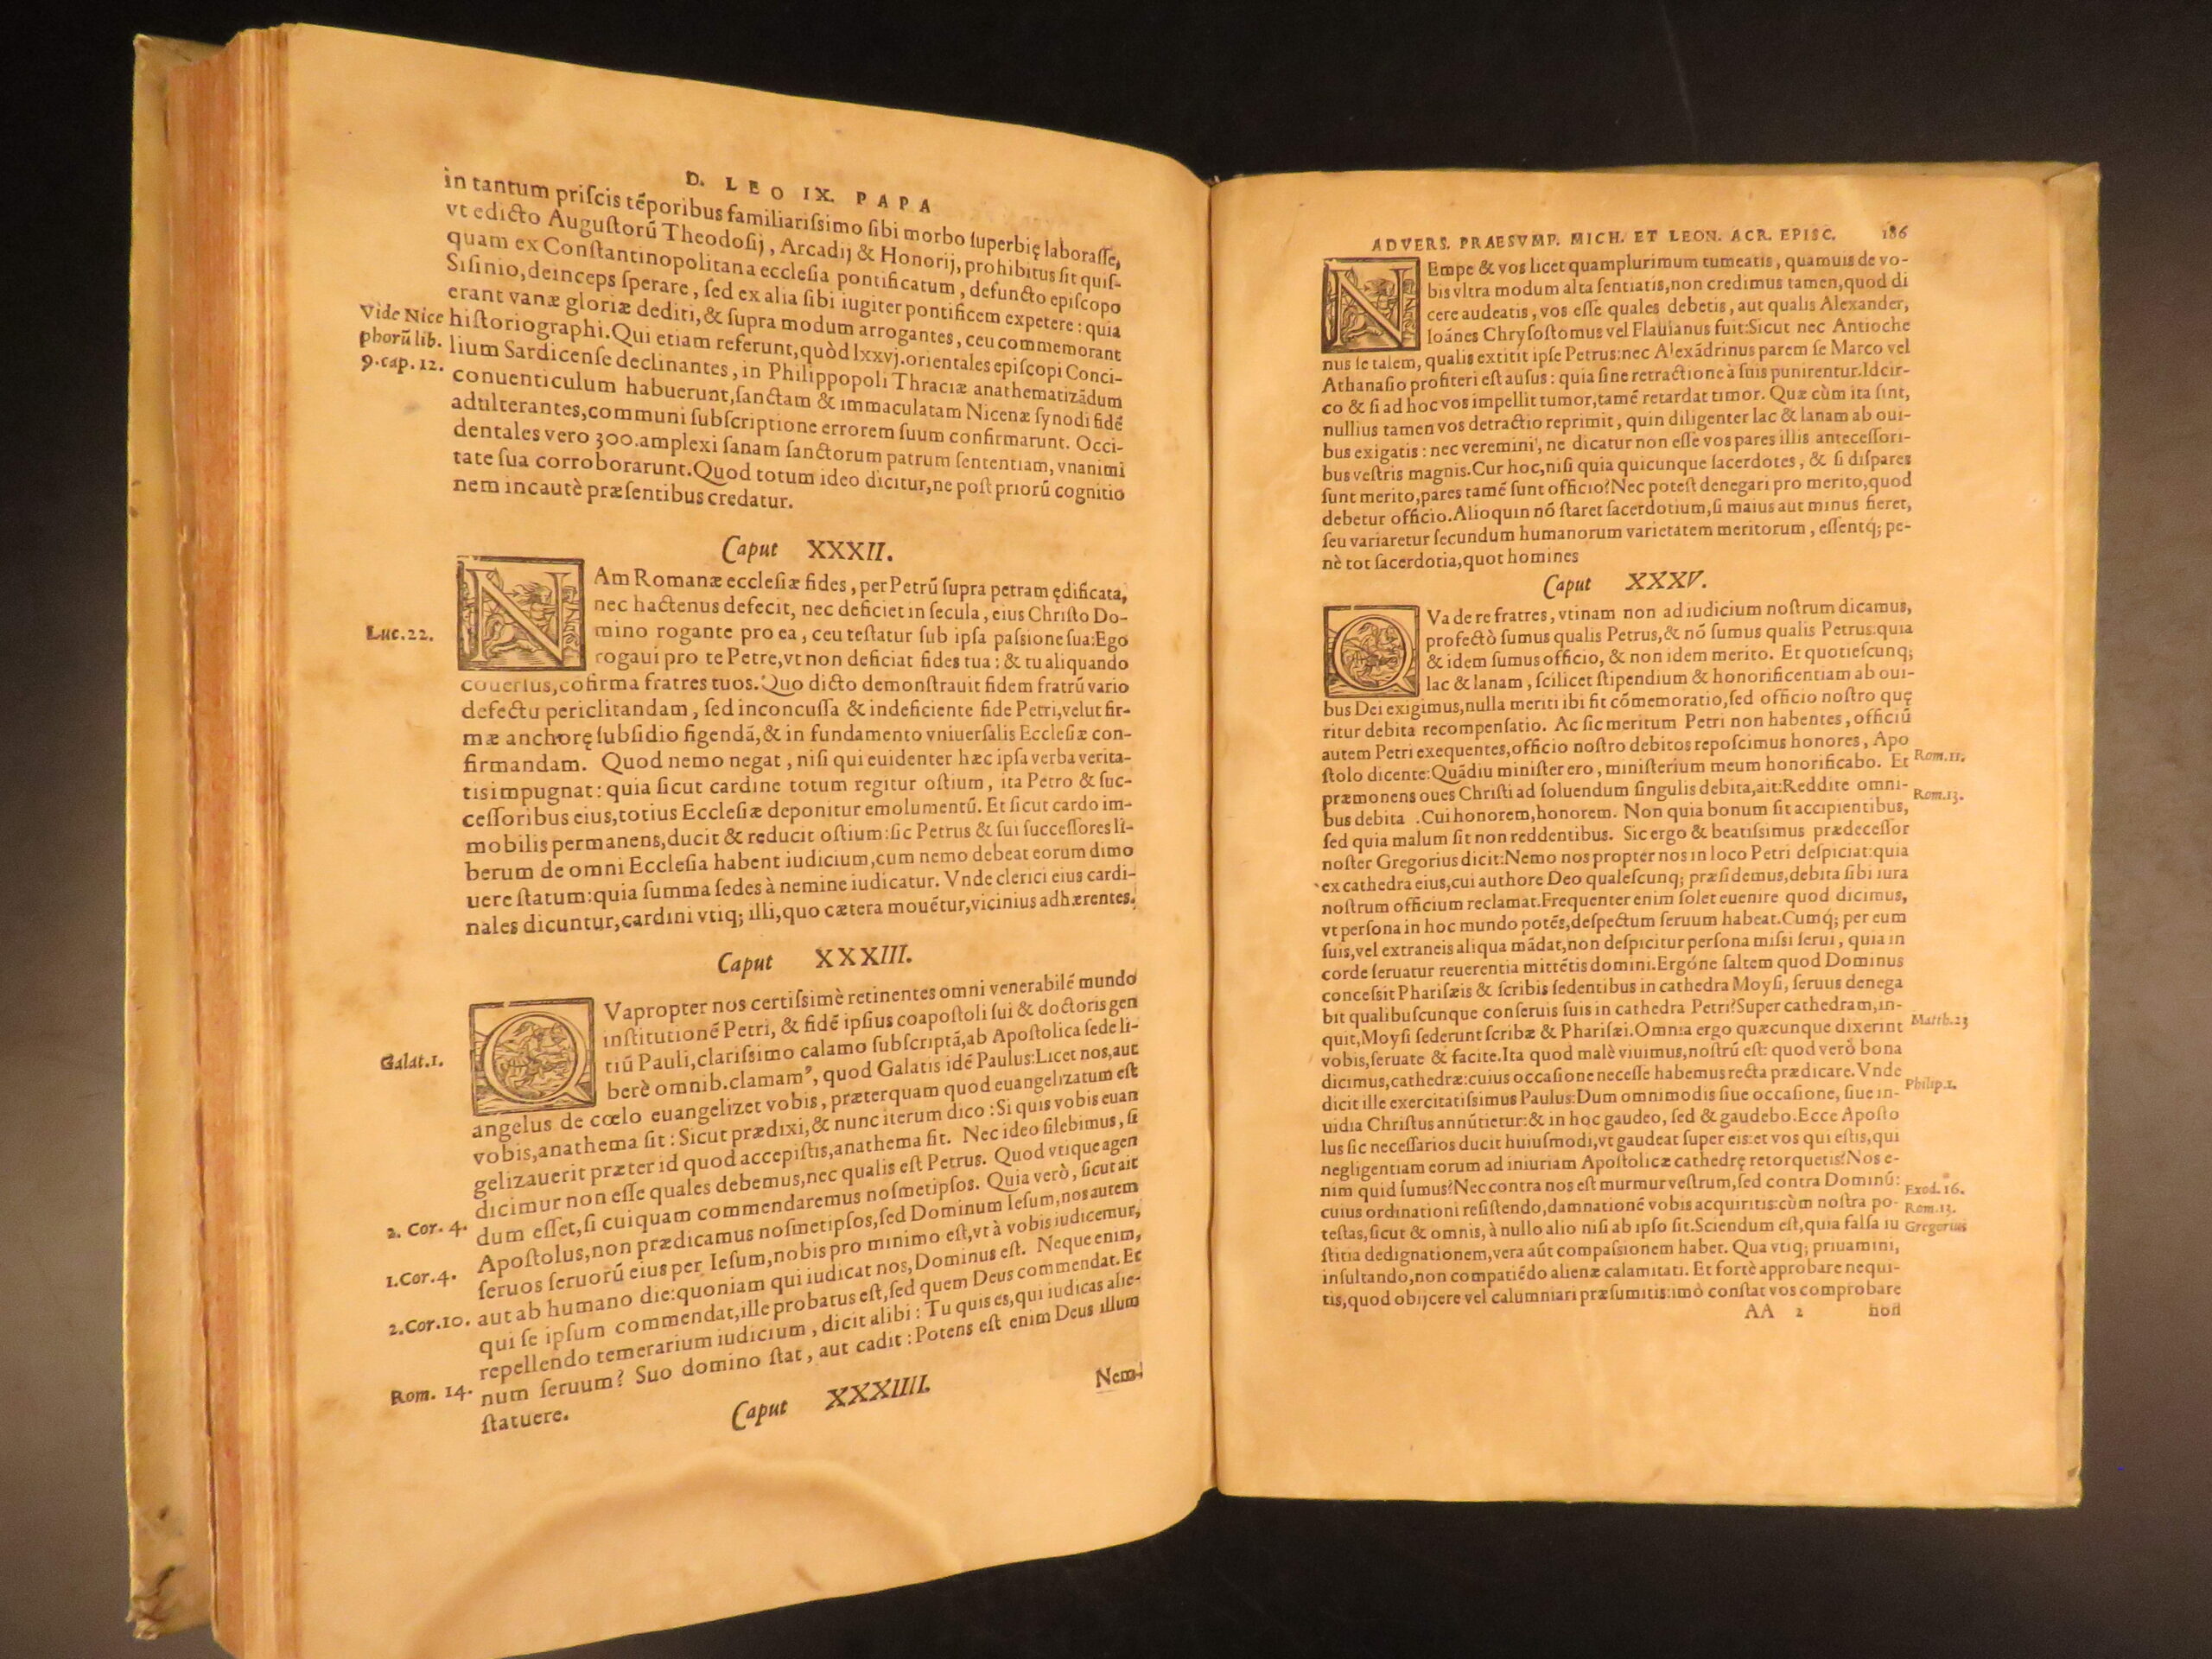 D. LEO IX. PAPA
in tantum priſcis tẽporibus familiariſsimo ſibi morbo ſuperbię laboraſſe,
vt edicto Auguſtorũ Theodoſij, Arcadij & Honorij, prohibitus ſit quiſ-
quam ex Conſtantinopolitana eccleſia pontificatum, defuncto epiſcopo
Siſinio, deinceps ſperare, ſed ex alia ſibi iugiter pontificem expetere: quia
erant vanæ gloriæ dediti, & ſupra modum arrogantes, ceu commemorant
Vide Nice
phorũ lib.
9. cap. 12.
hiſtoriographi. Qui etiam referunt, quòd lxxvj. orientales epiſcopi Conci-
lium Sardicenſe declinantes, in Philippopoli Thraciæ anathematizãdum
conuenticulum habuerunt, ſanctam & immaculatam Nicenæ ſynodi fidẽ
adulterantes, communi ſubſcriptione errorem ſuum confirmarunt. Occi-
dentales vero 300. amplexi ſanam ſanctorum patrum ſententiam, vnanimi
tate ſua corroborarunt. Quod totum ideo dicitur, ne poſt priorũ cognitio
nem incautè præſentibus credatur.
Caput XXXII.
NAm Romanæ eccleſiæ fides, per Petrũ ſupra petram ędificata,
nec hactenus defecit, nec deficiet in ſecula, eius Chriſto Do-
Luc. 22.
mino rogante pro ea, ceu teſtatur ſub ipſa paſsione ſua: Ego
rogaui pro te Petre, vt non deficiat fides tua: & tu aliquando
cõuerſus, cõfirma fratres tuos. Quo dicto demonſtrauit fidem fratrũ vario
defectu periclitandam, ſed inconcuſſa & indeficiente fide Petri, velut fir-
mæ anchorę ſubſidio figendã, & in fundamento vniuerſalis Eccleſiæ con-
firmandam. Quod nemo negat, niſi qui euidenter hæc ipſa verba verita-
tis impugnat: quia ſicut cardine totum regitur oſtium, ita Petro & ſuc-
ceſſoribus eius, totius Eccleſiæ deponitur emolumentũ. Et ſicut cardo im-
mobilis permanens, ducit & reducit oſtium: ſic Petrus & ſui ſucceſſores li-
berum de omni Eccleſia habent iudicium, cum nemo debeat eorum dimo
uere ſtatum: quia ſumma ſedes à nemine iudicatur. Vnde clerici eius cardi-
nales dicuntur, cardini vtiq; illi, quo cætera mouẽtur, vicinius adhærentes.
Caput XXXIII.
QVapropter nos certiſsimè retinentes omni venerabilẽ mundo
inſtitutionẽ Petri, & fidẽ ipſius coapoſtoli ſui & doctoris gen
tiũ Pauli, clariſsimo calamo ſubſcriptã, ab Apoſtolica ſede li-
Galat. 1.
berè omnib. clamamꝰ, quod Galatis idẽ Paulus: Licet nos, aut
angelus de cœlo euangelizet vobis, præterquam quod euangelizatum eſt
vobis, anathema ſit: Sicut prædixi, & nunc iterum dico: Si quis vobis euan
gelizauerit præter id quod accepiſtis, anathema ſit. Nec ideo ſilebimus, ſi
dicimur non eſſe quales debemus, nec qualis eſt Petrus. Quod vtique agen
dum eſſet, ſi cuiquam commendaremus noſmetipſos. Quia verò, ſicut ait
2. Cor. 4.
Apoſtolus, non prædicamus noſmetipſos, ſed Dominum Ieſum, nos autem
ſeruos ſeruorũ eius per Ieſum, nobis pro minimo eſt, vt à vobis iudicemur,
1. Cor. 4.
aut ab humano die: quoniam qui iudicat nos, Dominus eſt. Neque enim,
2. Cor. 10.
qui ſe ipſum commendat, ille probatus eſt, ſed quem Deus commendat. Et
repellendo temerarium iudicium, dicit alibi: Tu quis es, qui iudicas alie-
Rom. 14.
num ſeruum? Suo domino ſtat, aut cadit: Potens eſt enim Deus illum
ſtatuere.
Caput XXXIIII.
Nem-
ADVERS. PRAESVMP. MICH. ET LEON. ACR. EPISC. 186
NEmpe & vos licet quamplurimum tumeatis, quamuis de vo-
bis vltra modum alta ſentiatis, non credimus tamen, quod di
cere audeatis, vos eſſe quales debetis, aut qualis Alexander,
Ioánes Chryſoſtomus vel Flauianus fuit: Sicut nec Antioche
nus ſe talem, qualis extitit ipſe Petrus: nec Alexãdrinus parem ſe Marco vel
Athanaſio profiteri eſt auſus: quia ſine retractione à ſuis punirentur. Idcir-
co & ſi ad hoc vos impellit tumor, tamẽ retardat timor. Quæ cùm ita ſint,
nullius tamen vos detractio reprimit, quin diligenter lac & lanam ab oui-
bus exigatis: nec veremini, ne dicatur non eſſe vos pares illis anteceſſori-
bus veſtris magnis. Cur hoc, niſi quia quicunque ſacerdotes, & ſi diſpares
ſunt merito, pares tamẽ ſunt officio? Nec poteſt denegari pro merito, quod
debetur officio. Alioquin nõ ſtaret ſacerdotium, ſi maius aut minus fieret,
ſeu variaretur ſecundum humanorum varietatem meritorum, eſſentq́; pe-
nè tot ſacerdotia, quot homines
Caput XXXV.
QVa de re fratres, vtinam non ad iudicium noſtrum dicamus,
profectò ſumus qualis Petrus, & nõ ſumus qualis Petrus: quia
& idem ſumus officio, & non idem merito. Et quotieſcunq;
lac & lanam, ſcilicet ſtipendium & honorificentiam ab oui-
bus Dei exigimus, nulla meriti ibi fit cõmemoratio, ſed officio noſtro quę
ritur debita recompenſatio. Ac ſic meritum Petri non habentes, officiũ
autem Petri exequentes, officio noſtro debitos repoſcimus honores, Apo
ſtolo dicente: Quãdiu miniſter ero, miniſterium meum honorificabo. Et
Rom. 11.
præmonens oues Chriſti ad ſoluendum ſingulis debita, ait: Reddite omni-
Rom. 13.
bus debita. Cui honorem, honorem. Non quia bonum ſit accipientibus,
ſed quia malum ſit non reddentibus. Sic ergo & beatiſsimus prædeceſſor
noſter Gregorius dicit: Nemo nos propter nos in loco Petri deſpiciat: quia
ex cathedra eius, cui authore Deo qualeſcunq; præſidemus, debita ſibi iura
noſtrum officium reclamat. Frequenter enim ſolet euenire quod dicimus,
vt perſona in hoc mundo potẽs, deſpectum ſeruum habeat. Cumq́; per eum
ſuis, vel extraneis aliqua mãdat, non deſpicitur perſona miſsi ſerui, quia in
corde ſeruatur reuerentia mittẽtis domini. Ergóne ſaltem quod Dominus
conceſsit Phariſæis & ſcribis ſedentibus in cathedra Moyſi, ſeruus denega
bit qualibuſcunque conſeruis ſuis in cathedra Petri? Super cathedram, in-
quit, Moyſi ſederunt ſcribæ & Phariſæi. Omnia ergo quæcunque dixerint
Matth. 23
vobis, ſeruate & facite. Ita quod malè viuimus, noſtrũ eſt: quod verò bona
dicimus, cathedræ: cuius occaſione neceſſe habemus recta prædicare. Vnde
dicit ille exercitatiſsimus Paulus: Dum omnimodis ſiue occaſione, ſiue in-
Philip. 1.
uidia Chriſtus annũtietur: & in hoc gaudeo, ſed & gaudebo. Ecce Apoſto
lus ſic neceſſarios ducit huiuſmodi, vt gaudeat ſuper eis: et vos qui eſtis, qui
negligentiam eorum ad iniuriam Apoſtolicæ cathedrę retorquetis? Nos e-
nim quid ſumus? Nec contra nos eſt murmur veſtrum, ſed contra Dominũ:
Exod. 16.
cuius ordinationi reſiſtendo, damnationẽ vobis acquiritis: cùm noſtra po-
Rom. 13.
teſtas, ſicut & omnis, à nullo alio niſi ab ipſo ſit. Sciendum eſt, quia falſa iu
Gregorius
ſtitia dedignationem, vera aũt compaſsionem habet. Qua vtiq; priuamini,
inſultando, non compatiẽdo alienæ calamitati. Et fortè approbare nequi-
tis, quod obijcere vel calumniari præſumitis: imò conſtat vos comprobare
AA 2 non